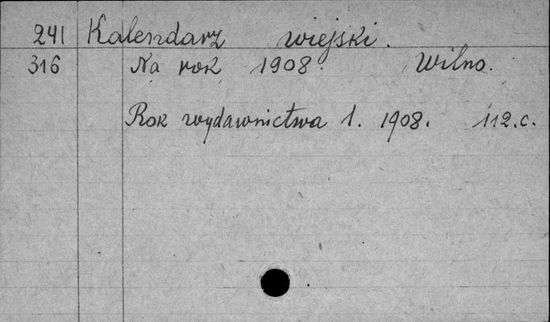 241 Kalendarz wiejski.
316 Na rok 1908. Wilno.
Rok wydawnictwa 1. 1908. 112.c.